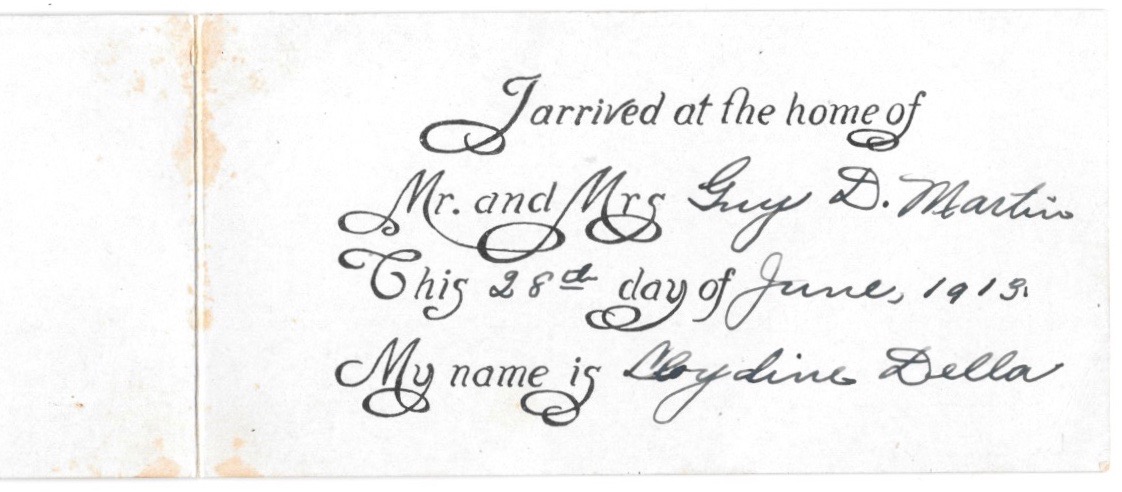 I arrived at the home of
Mr. and Mrs Guy D. Martin
This 28th day of June, 1913.
My name is Loydine Della